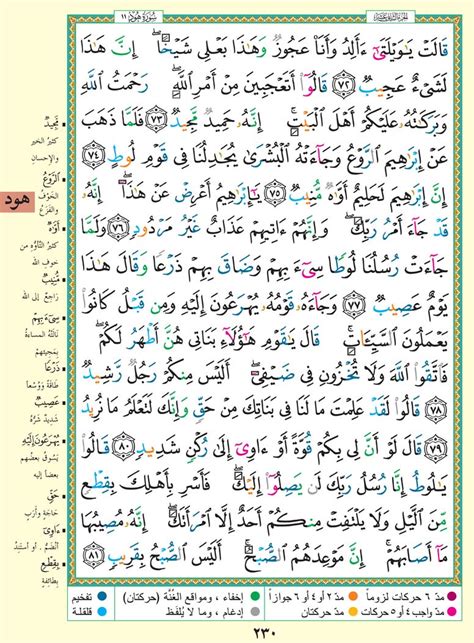 سُورَةُ هُودٍ ١١
الجزء الثاني عشر
قَالَتْ يَٰوَيْلَتَىٰٓ ءَأَلِدُ وَأَنَا۠ عَجُوزٌ وَهَٰذَا بَعْلِى شَيْخًا ۖ إِنَّ هَٰذَا
لَشَىْءٌ عَجِيبٌ ٧٢ قَالُوٓا۟ أَتَعْجَبِينَ مِنْ أَمْرِ ٱللَّهِ ۖ رَحْمَتُ ٱللَّهِ
وَبَرَكَٰتُهُۥ عَلَيْكُمْ أَهْلَ ٱلْبَيْتِ ۚ إِنَّهُۥ حَمِيدٌ مَّجِيدٌ ٧٣ فَلَمَّا ذَهَبَ
عَنْ إِبْرَٰهِيمَ ٱلرَّوْعُ وَجَآءَتْهُ ٱلْبُشْرَىٰ يُجَٰدِلُنَا فِى قَوْمِ لُوطٍ ٧٤
إِنَّ إِبْرَٰهِيمَ لَحَلِيمٌ أَوَّٰهٌ مُّنِيبٌ ٧٥ يَٰٓإِبْرَٰهِيمُ أَعْرِضْ عَنْ هَٰذَآ ۖ إِنَّهُۥ
قَدْ جَآءَ أَمْرُ رَبِّكَ ۖ وَإِنَّهُمْ ءَاتِيهِمْ عَذَابٌ غَيْرُ مَرْدُودٍ ٧٦ وَلَمَّا
جَآءَتْ رُسُلُنَا لُوطًا سِىٓءَ بِهِمْ وَضَاقَ بِهِمْ ذَرْعًا وَقَالَ هَٰذَا
يَوْمٌ عَصِيبٌ ٧٧ وَجَآءَهُۥ قَوْمُهُۥ يُهْرَعُونَ إِلَيْهِ وَمِن قَبْلُ كَانُوا۟
يَعْمَلُونَ ٱلسَّيِّـَٔاتِ ۚ قَالَ يَٰقَوْمِ هَٰٓؤُلَآءِ بَنَاتِى هُنَّ أَطْهَرُ لَكُمْ ۖ
فَٱتَّقُوا۟ ٱللَّهَ وَلَا تُخْزُونِ فِى ضَيْفِىٓ ۖ أَلَيْسَ مِنكُمْ رَجُلٌ رَّشِيدٌ
٧٨ قَالُوا۟ لَقَدْ عَلِمْتَ مَا لَنَا فِى بَنَاتِكَ مِنْ حَقٍّ وَإِنَّكَ لَتَعْلَمُ مَا نُرِيدُ
٧٩ قَالَ لَوْ أَنَّ لِى بِكُمْ قُوَّةً أَوْ ءَاوِىٓ إِلَىٰ رُكْنٍ شَدِيدٍ ٨٠ قَالُوا۟
يَٰلُوطُ إِنَّا رُسُلُ رَبِّكَ لَن يَصِلُوٓا۟ إِلَيْكَ ۖ فَأَسْرِ بِأَهْلِكَ بِقِطْعٍ
مِّنَ ٱلَّيْلِ وَلَا يَلْتَفِتْ مِنكُمْ أَحَدٌ إِلَّا ٱمْرَأَتَكَ ۖ إِنَّهُۥ مُصِيبُهَا
مَآ أَصَابَهُمْ ۚ إِنَّ مَوْعِدَهُمُ ٱلصُّبْحُ ۚ أَلَيْسَ ٱلصُّبْحُ بِقَرِيبٍ ٨١
هود
مَّجِيدٌ
كثيرُ الخير
والإحسانِ
الرَّوْعُ
الخَوْفُ
والفَزَعُ
أَوَّٰهٌ
كثيرُ التأوّه من
خوفِ الله
مُنِيبٌ
راجعٌ إلى الله
سِىٓءَ بِهِمْ
نالَتْهُ المساءةُ
بمجيئهم
ذَرْعًا
طاقَةً ووُسْعاً
عَصِيبٌ
شديدٌ شرُّه
يُهْرَعُونَ إِلَيْهِ
يسوقُ بعضُهم
بعضاً إليه
حَقٍّ
حاجَةٍ وأرَبٍ
ءَاوِىٓ
أنضمُّ، أو أستَنِدُ
بِقِطْعٍ
بطائفةٍ
مدّ ٦ حركات لزوماً
مدّ ٢ أو ٤ أو ٦ جوازاً
إخفاء، ومواقع الغُنَّة (حركتان)
تفخيم
مدّ واجب ٤ أو ٥ حركات
مدّ حركتان
إدغام، وما لا يُلفَظ
قلقلة
٢٣٠